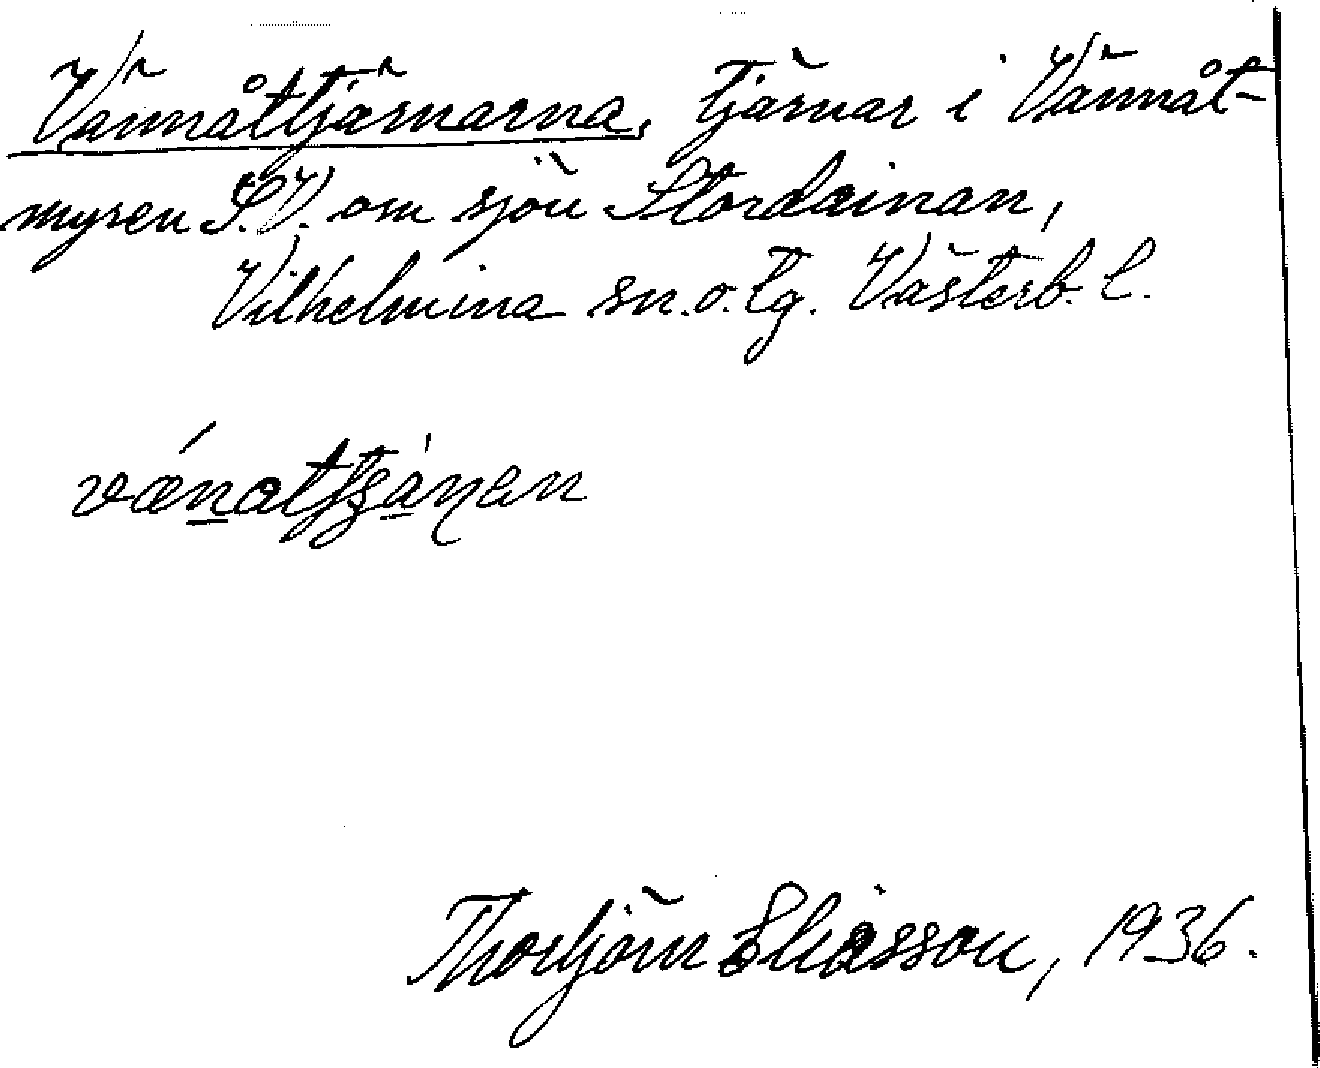 Vännåttjärnarna, tjärnar i Vännåt-
myren S.V. om sjön Stordainan,
Vilhelmina sn.o.tg. Västerb. l.
Thorbjörn Eliasson, 1936.